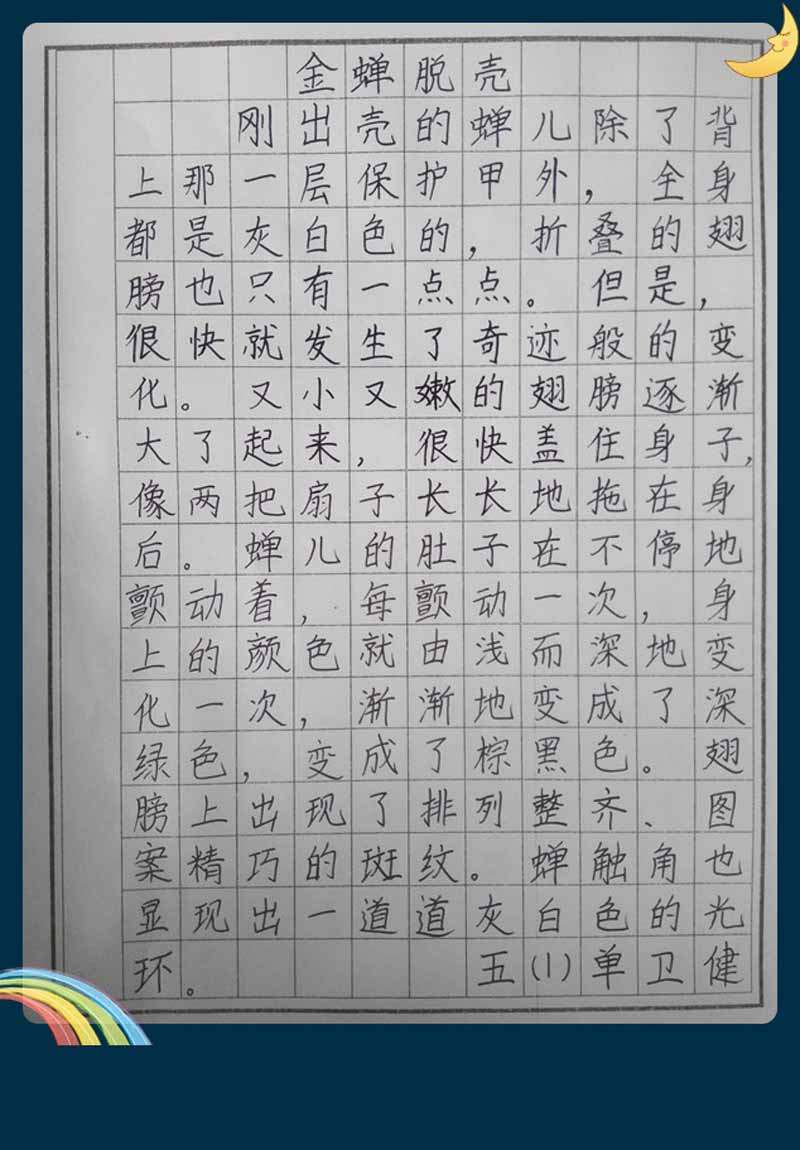 金蝉脱壳
刚出壳的蝉儿除了背
上那一层保护甲外，全身
都是灰白色的，折叠的翅
膀也只有一点点。但是，
很快就发生了奇迹般的变
化。又小又嫩的翅膀逐渐
大了起来，很快盖住身子，
像两把扇子长长地拖在身
后。蝉儿的肚子在不停地
颤动着，每颤动一次，身
上的颜色就由浅而深地变
化一次，渐渐地变成了深
绿色，变成了棕黑色。翅
膀上出现了排列整齐、图
案精巧的斑纹。蝉触角也
显现出一道道灰白色的光
环。五(1)单卫健